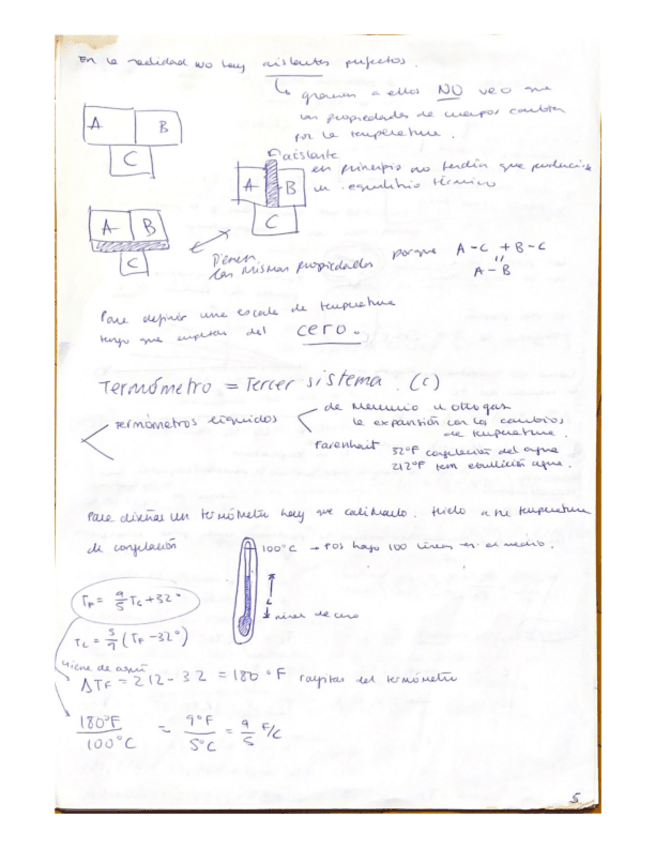 En la realidad no hay aislantes perfectos.
gracias a ellos NO veo que
las propiedades de cuerpos cambian
por la temperatura.
A B
C
aislante
A B
C
en principio no tendría que producirse
un equilibrio térmico
A B
C
Tienen
las mismas propiedades porque A-C + B-C
"
A-B
Para definir una escala de temperatura
tengo que empezar del cero.
Termómetro = Tercer sistema. (C)
termómetros líquidos
de Mercurio u otro gas
la expansión con los cambios
de temperatura.
Farenhait 32°F congelación del agua
212°F tem ebullición agua.
Para diseñar un termómetro hay que calibrarlo. Hielo a tu temperatura
de congelación
100°C → pos hago 100 líneas en el medio.
L
nivel de cero
T_F = 9/5 T_C + 32°
T_C = 5/9 (T_F - 32°)
viene de aquí
ΔT_F = 212 - 32 = 180°F rayitas del termómetro
180°F/100°C = 9°F/5°C = 9/5 F/C
5